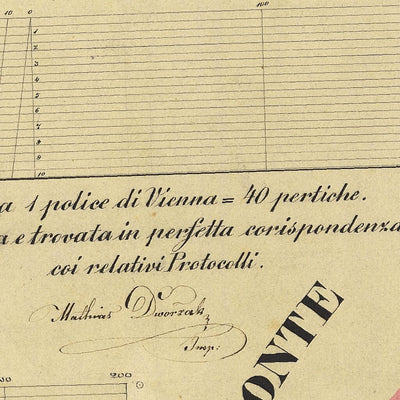 10 0 100
1
2
3
4
5
6
7
8
9
10
a 1 police di Vienna = 40 pertiche.
a e trovata in perfetta corispondenza
coi relativi Protocolli.
Mathias Dworzak
Insp:
ONTE
50 200